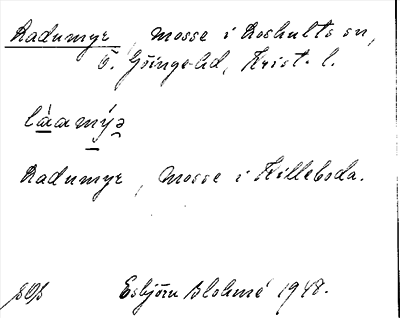 Radumyr, mosse i Loshults sn,
Ö. Göinge hd, Krist. l.
låamýə
Radumyr, mosse i Killeboda.
Esbjörn Blohmé 1948.